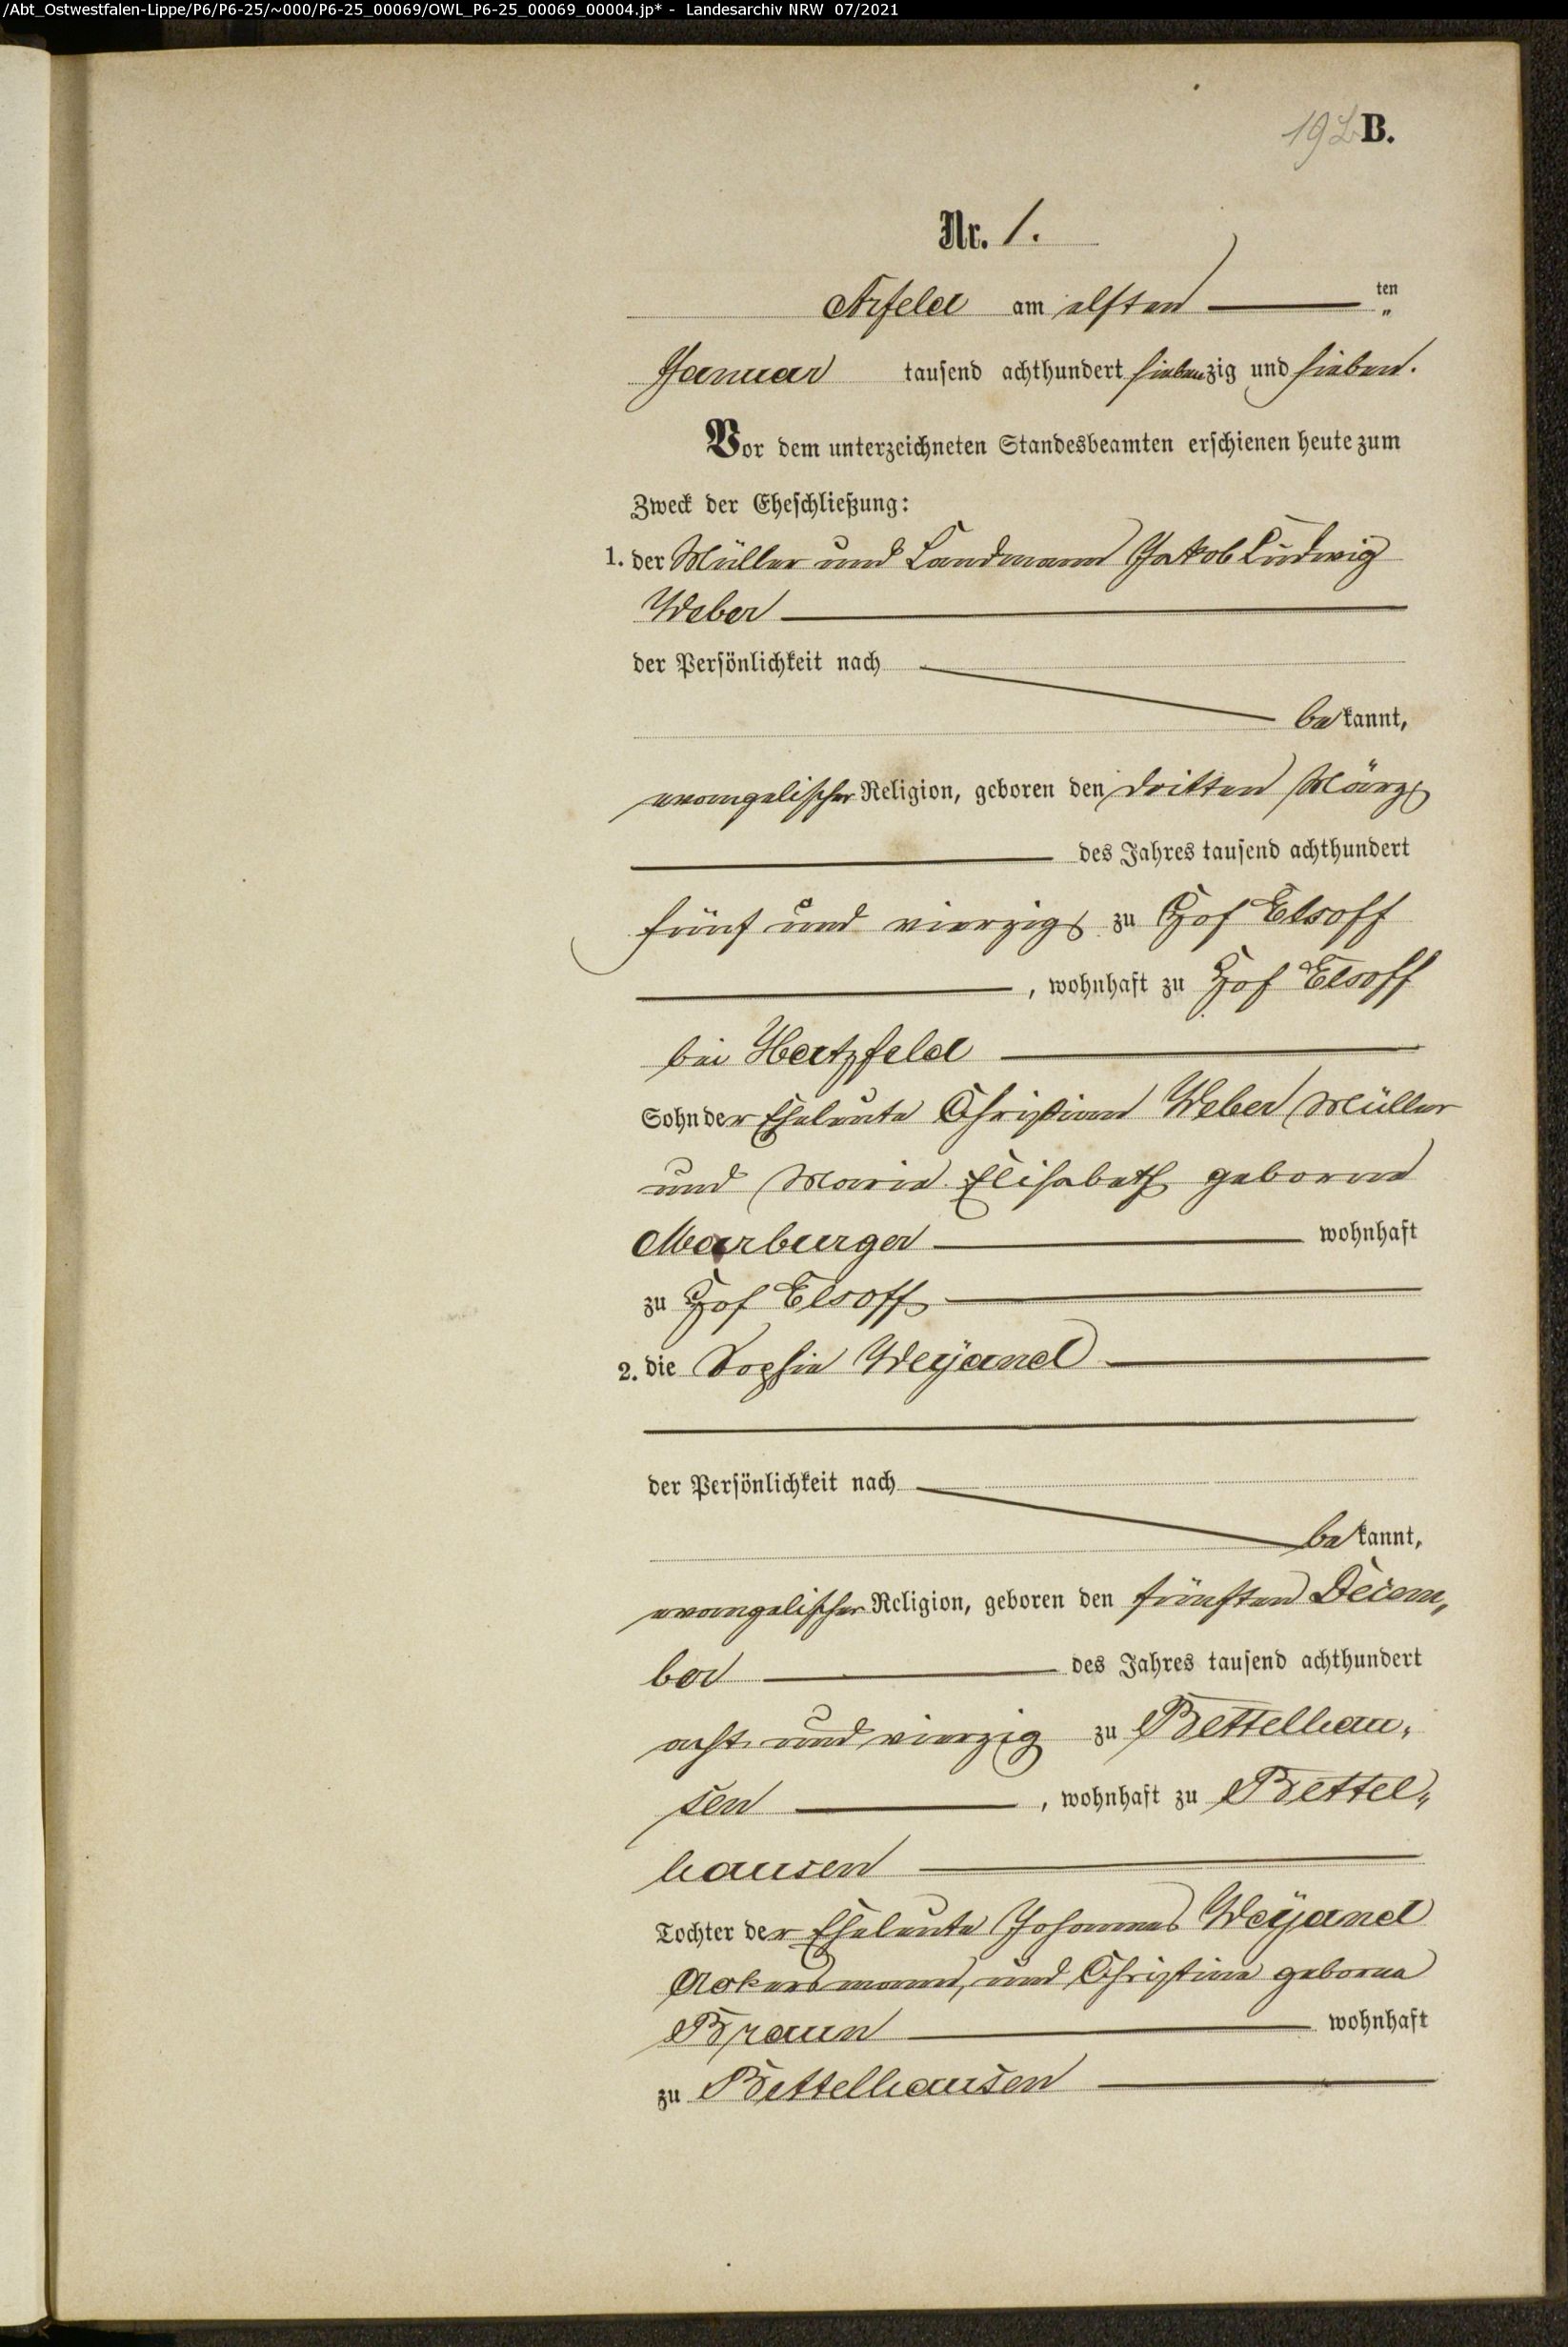 /Abt_Ostwestfalen-Lippe/P6/P6-25/~000/P6-25_00069/OWL_P6-25_00069_00004.jp* - Landesarchiv NRW 07/2021
B.
Nr. 1.
Arfeld am elften ten "
Januar tausend achthundert siebenzig und sieben.
Vor dem unterzeichneten Standesbeamten erschienen heute zum
Zweck der Eheschließung:
1. der Müller und Landmann Jakob Ludwig
Weber
der Persönlichkeit nach
bekannt,
evangelischer Religion, geboren den dritten März
des Jahres tausend achthundert
fünf und vierzig zu Hof Elsoff
, wohnhaft zu Hof Elsoff
bei Hatzfeld
Sohn der Eheleute Christian Weber Müller
und Maria Elisabeth geborne
Marburger wohnhaft
zu Hof Elsoff
2. die Sophie Weÿand
der Persönlichkeit nach
bekannt,
evangelischer Religion, geboren den fünften Decem„
ber des Jahres tausend achthundert
acht und vierzig zu Bettelhau„
sen , wohnhaft zu Bettel„
hausen
Tochter der Eheleute Johannes Weÿand
Ackersmann, und Christine geborne
Braun wohnhaft
zu Bettelhausen